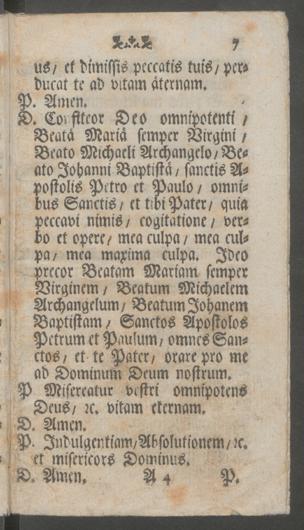 7
us/ et dimissis peccatis tuis/ per-
ducat te ad vitam äternam.
P. Amen.
D. Confiteor Deo omnipotenti /
Beatä Mariä semper Virgini /
Beato Michaeli Archangelo/ Be-
ato Johanni Baptistä/ sanctis A-
postolis Petro et Paulo/ omni-
bus Sanctis/ et tibi Pater/ quia
peccavi nimis/ cogitatione/ ver-
bo et opere/ mea culpa/ mea cul-
pa/ mea maxima culpa. Ideo
precor Beatam Mariam semper
Virginem / Beatum Michaelem
Archangelum/ Beatum Johanem
Baptistam/ Sanctos Apostolos
Petrum et Paulum/ omnes San-
ctos/ et te Pater/ orare pro me
ad Dominum Deum nostrum.
P. Misereatur vestri omnipotens
Deus/ ꝛc. vitam eternam.
D. Amen.
P. Indulgentiam/Absolutionem/ꝛc.
et misericors Dominus.
D. Amen. A 4 P.